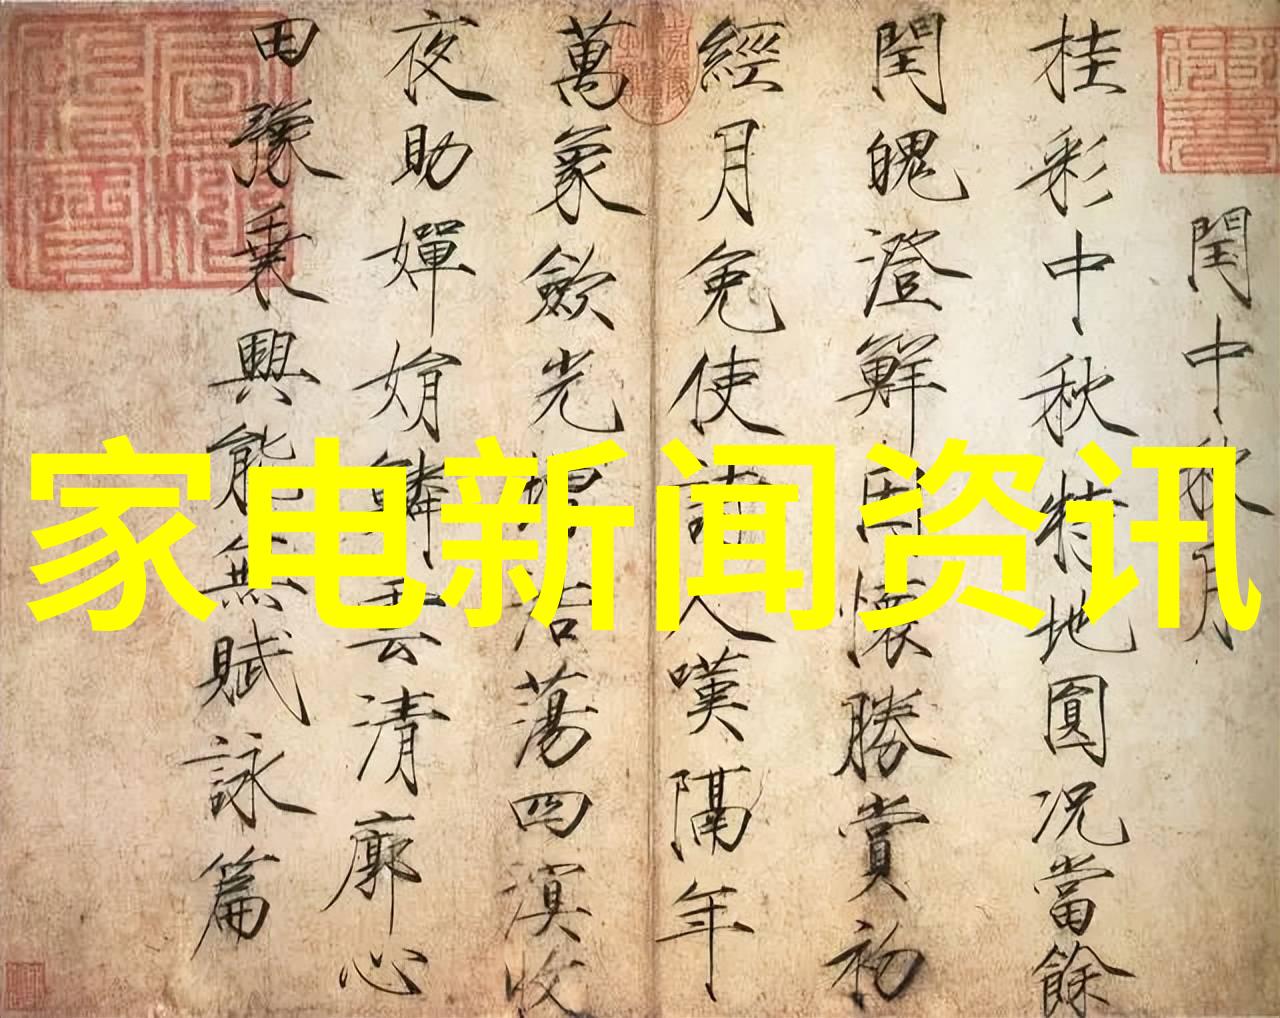 閏中秋月
桂彩中秋特地圓況當餘
閏魄澄鮮因懷勝賞初
經月免使詩人嘆隔年
萬象歛光增浩蕩四溟收
夜助嬋娟鱗雲清廓心
田豫乗興能無賦詠篇
家电新闻资讯